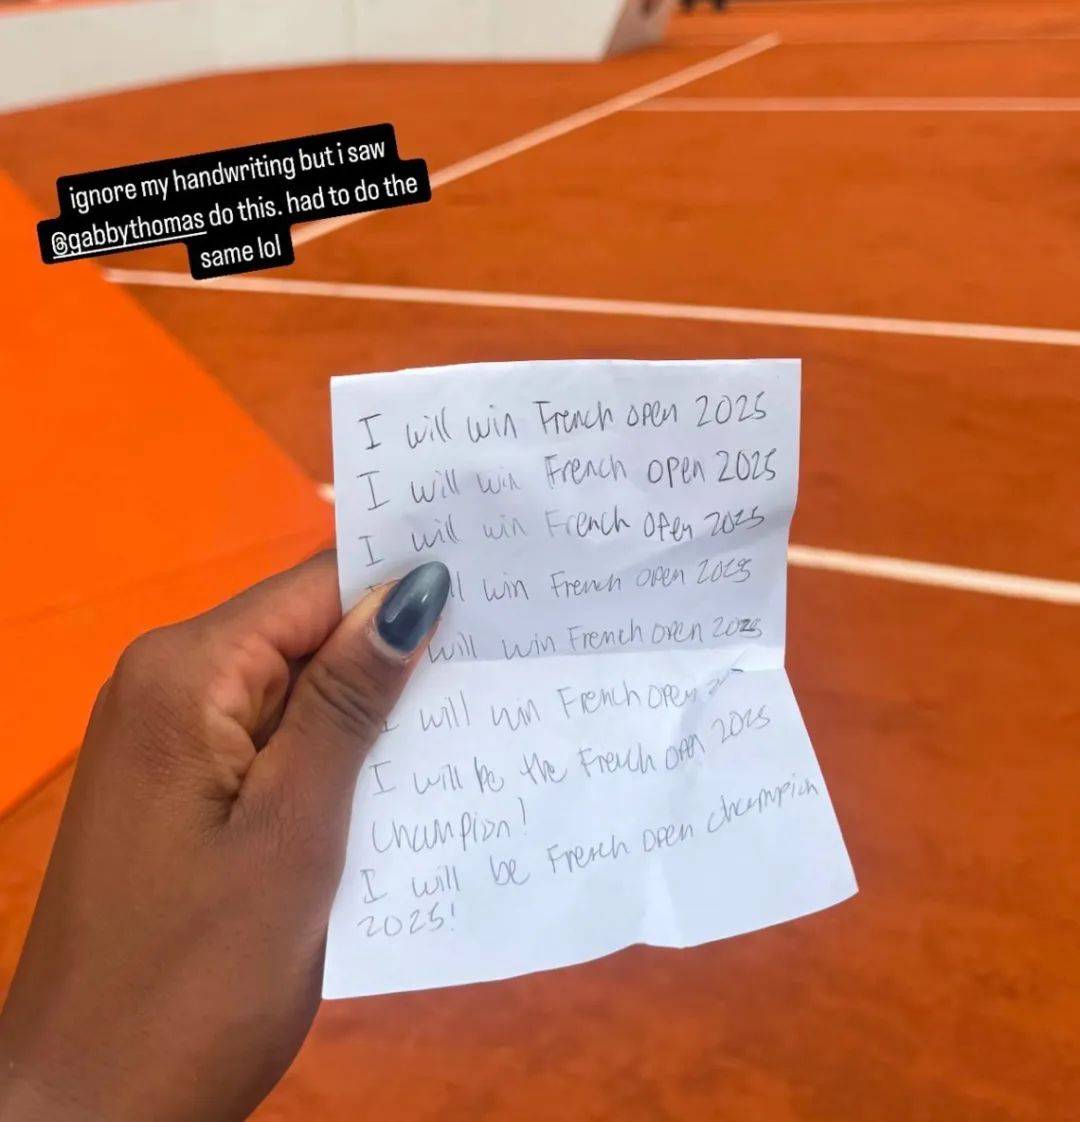 ignore my handwriting but i saw
@gabbythomas do this. had to do the
same lol
I will win French open 2025
I will win French open 2025
I will win French open 2025
win French open 2025
will win French open 2025
I will win French open
I will be the French open 2025
Champion!
I will be French open champion
2025!